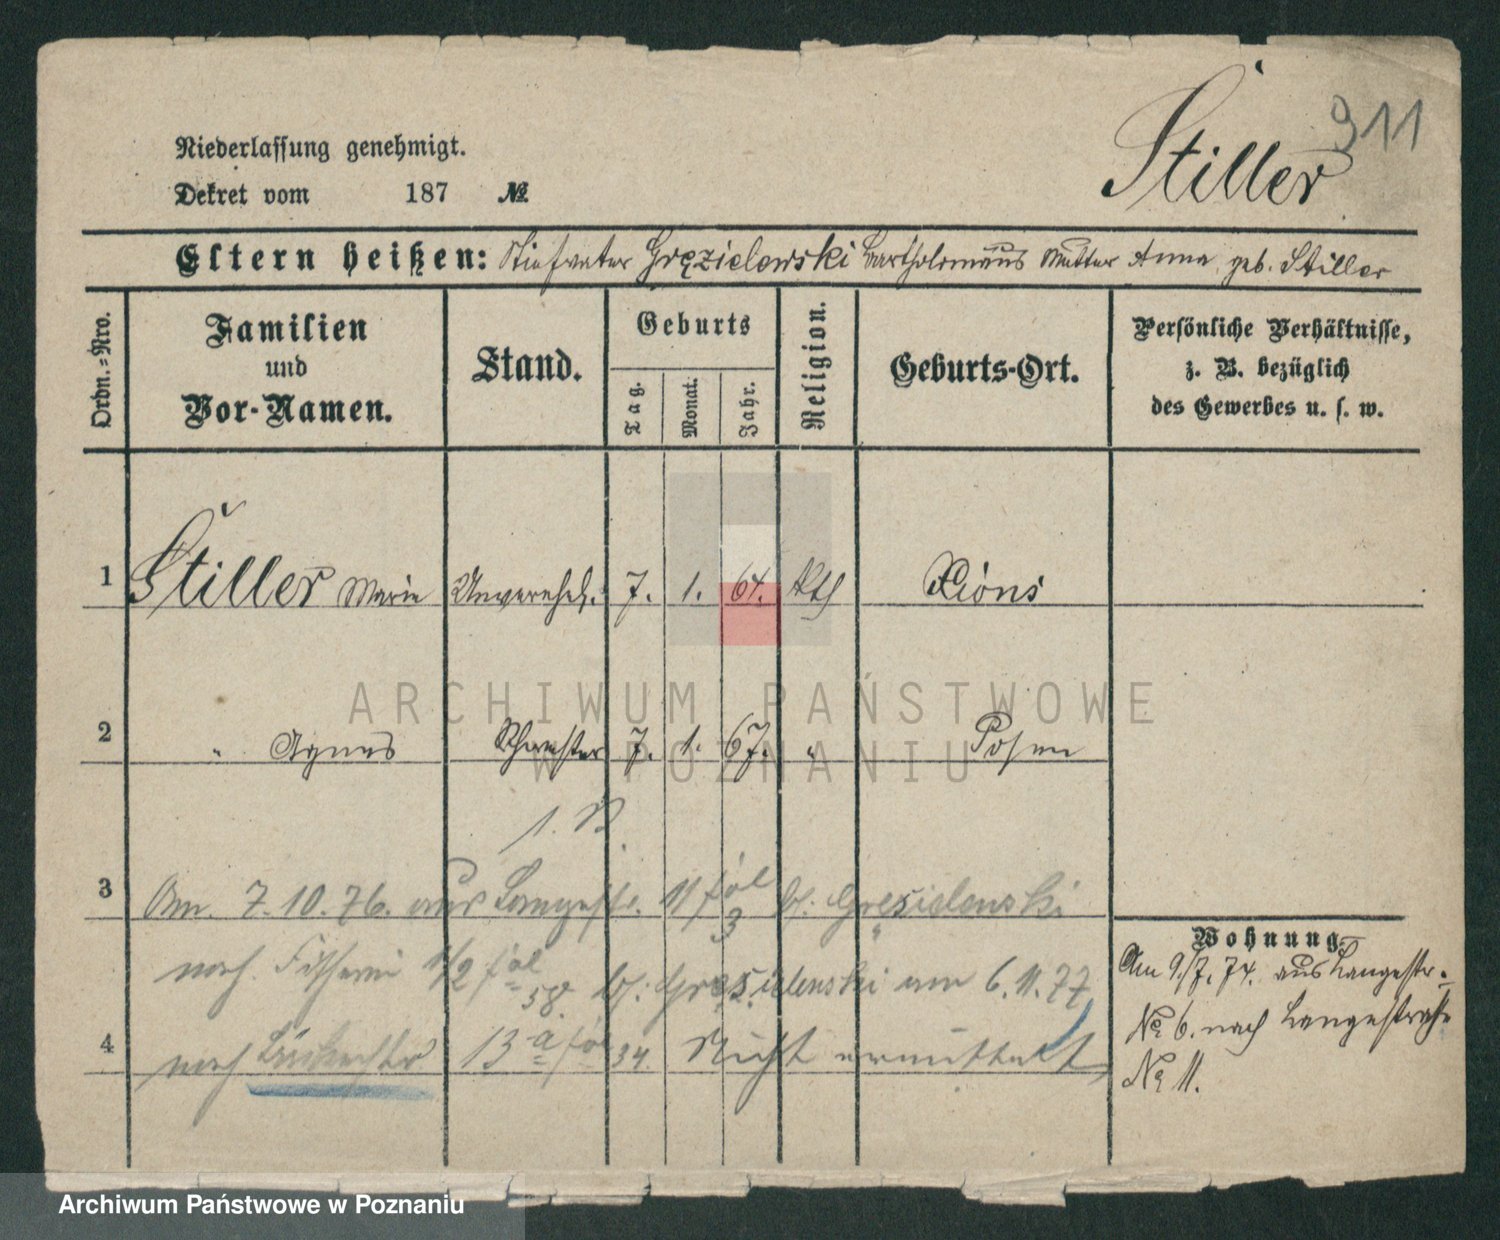 911
Stiller
Niederlassung genehmigt.
Dekret vom 187 №
Eltern heißen: Stiefvater Gręzielewski Bartholomäus Mutter Anna geb. Stiller
Ordn.-Nro.
Familien
und
Vor-Namen.
Stand.
Geburts
Tag.
Monat.
Jahr.
Religion.
Geburts-Ort.
Persönliche Verhältnisse,
z. B. bezüglich
des Gewerbes u. s. w.
1 Stiller Marie Unverehel. 7. 1. 64. Kth Xions
2 " Agnes Schwester 7. 1. 67. " Posen
3 Am 7.10.76. aus Langestr. 11 fol 3 b. Gręzielewski
nach Fischerei 1/2 fol 58 b. Gręzielewski am 6.11.77
4 nach 13a fol 34. Nicht ermittelt
Wohnung.
Am 9./7.74. aus Langestr.
No 6. nach Langestraße
No 11.
ARCHIWUM PAŃSTWOWE
W POZNANIU
Archiwum Państwowe w Poznaniu